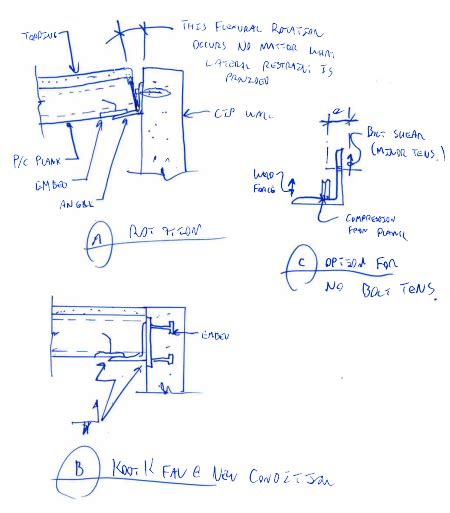 TOPPING
THIS FLEXURAL ROTATION
OCCURS NO MATTER WHAT
LATERAL RESTRAINT IS
PROVIDED
CIP WALL
P/C PLANK
EMBED
ANGLE
A ROTATION
e
BOLT SHEAR
(MINOR TENS.)
WELD
FORCE
COMPRESSION
FROM PLANK
C OPTION FOR
NO BOLT TENS.
EMBED
B KOOTK FAV @ NEW CONDITION